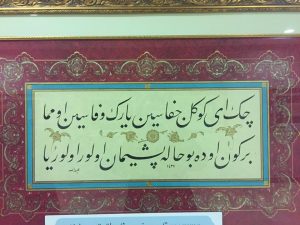 چك اى كوكل جفاسين يارك وفاسين اومما
بر كون اوده بو حاله پشيمان اولور اولور يا